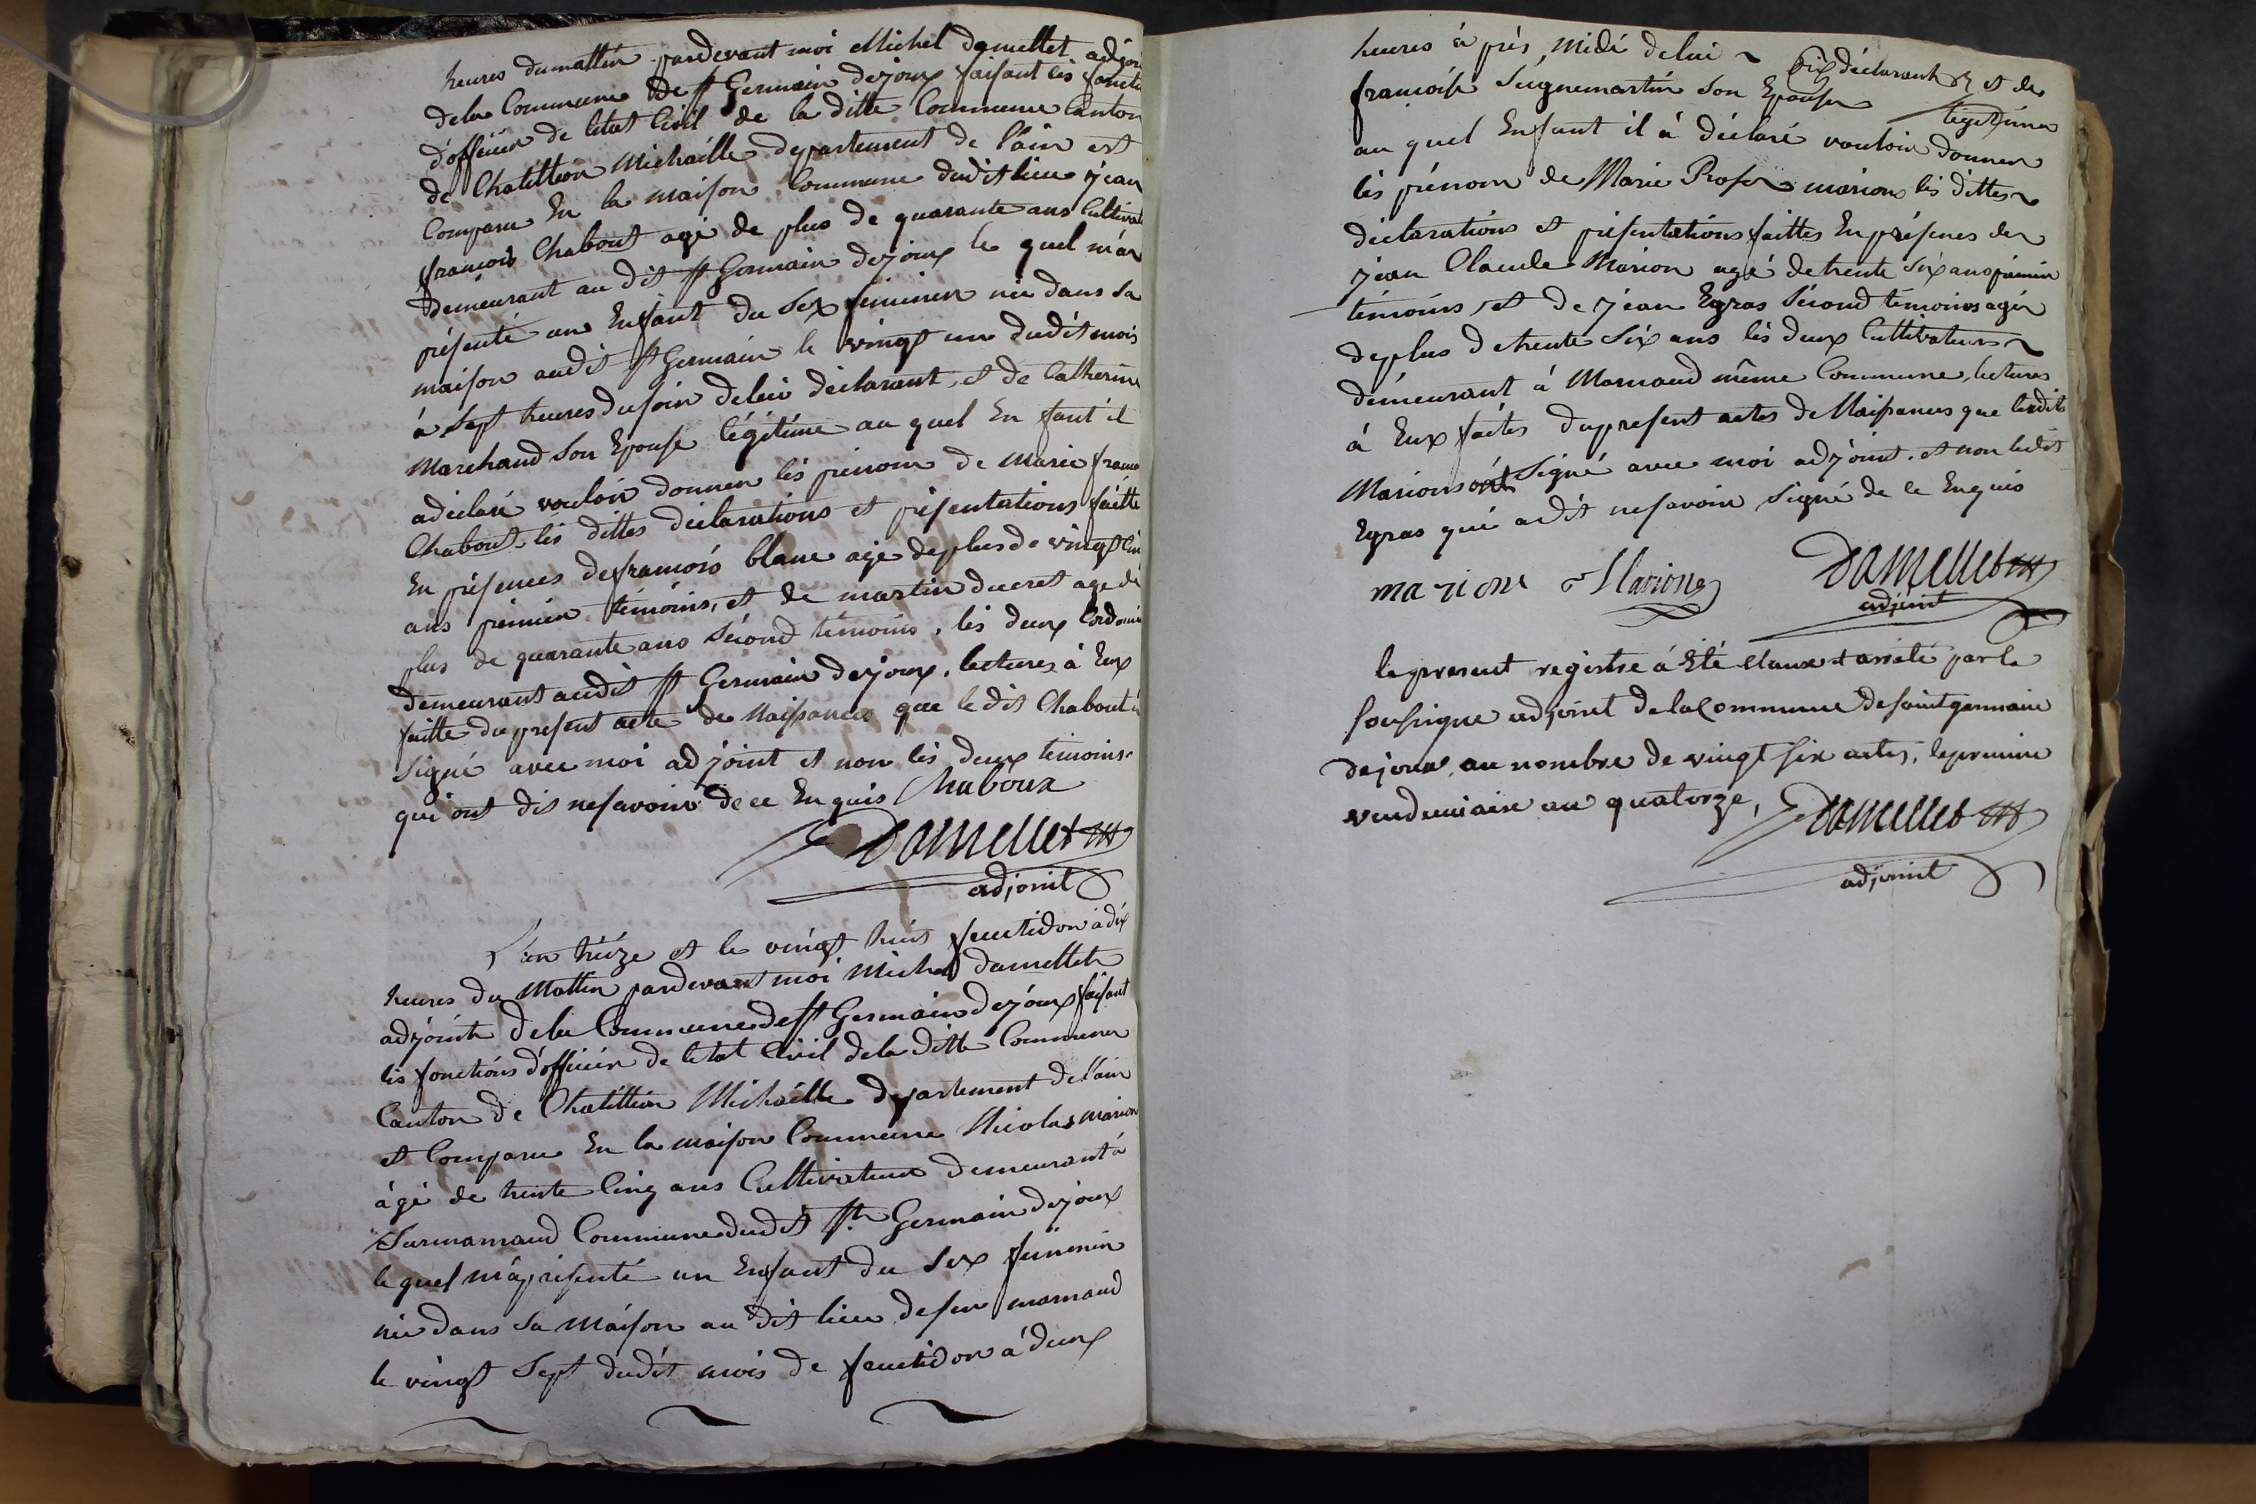 heures dumattin pardevant moi Michel damellet adjoi
dela Commune De st Germain dejoux faisant les foncti
d'officier de letat Civil de la ditte Commune Canton
de Chatillion Michaille departement de l'ain est
Comparu En la maison Commune dudit lieu jean
francois Chabout agé de plus de quarante ans Cultivat
demeurant au dit st Germain dejoux le quel m'a
présenté un Enfant du Sex feminin née dans sa
maison audit st Germain le vingt un dudit mois
à Sept heures dusoir delui déclarant, et de Catherine
Marchand Son Epouse légitime au quel En fant il
adéclaré vouloir donner lés prénom de Marie franc
Chabout, lés dittes déclarations et présentations faitte
En présences defrancois blanc agé deplus de vingt cin
ans prémier témoins, et de martin ducret age de
plus de quarante ans Sécond témoins, lés deux Cordonni
demeurant audit st Germain dejoux, lectures à Eux
faitte du present acte de Naissances que le dit Chabout à
Signé avec moi adjoint et non lés deux témoins
qui ont dit nesavoir de ce Enquis Chaboux
Damellet
adjoint
L'an treize et le vingt huit fructidor à dix
heures du Mattin pardevant moi Michel damellet
adjoint dela Commune de st Germain dejoux faisant
lés fonctions d'officier de letat Civil dela ditte Commune
Canton de Chatillion Michaille departement de l'ain
et Comparu En la maison Commune Nicolas marion
âgé de trente Cinq ans Cultivateur demeurant à
Surmarnaud Commune dudit st Germain dejoux
le quel m'à présenté un Enfant du Sex feminin
née dans Sa Maison au dit lieu desur marnaud
le vingt Sept dudit mois de fructidor à deux
heures à près, midi delui déclarant et de
francoise Seignemartin Son Epouse légitime
au quel Enfant il à déclaré vouloir donner
lés prénom de Marie Rose marion lés dittes
déclarations et présentations faittes En présences de
jean Claude Marion agé detrente Six ans prémier
témoins, et de jean Egras Sécond témoins agés
deplus de trente Six ans lés deux Cultivateurs
démeurant à Marnaud même Commune, lectures
à Eux faites dupresent actes de Naissances que lesdits
Marions ont Signé avec moi adjoint. et non ledit
Egras qui adit nesavoir Signé de ce Enquis
marion Marion Damellet
adjoint
lepresent registre á Eté Claux et arreté par le
soussigne adjoint dela Commune desaint germain
dejoux, au nombre de vingt six actes, lepremier
vendemiaire an quatorze, Damellet
adjoint